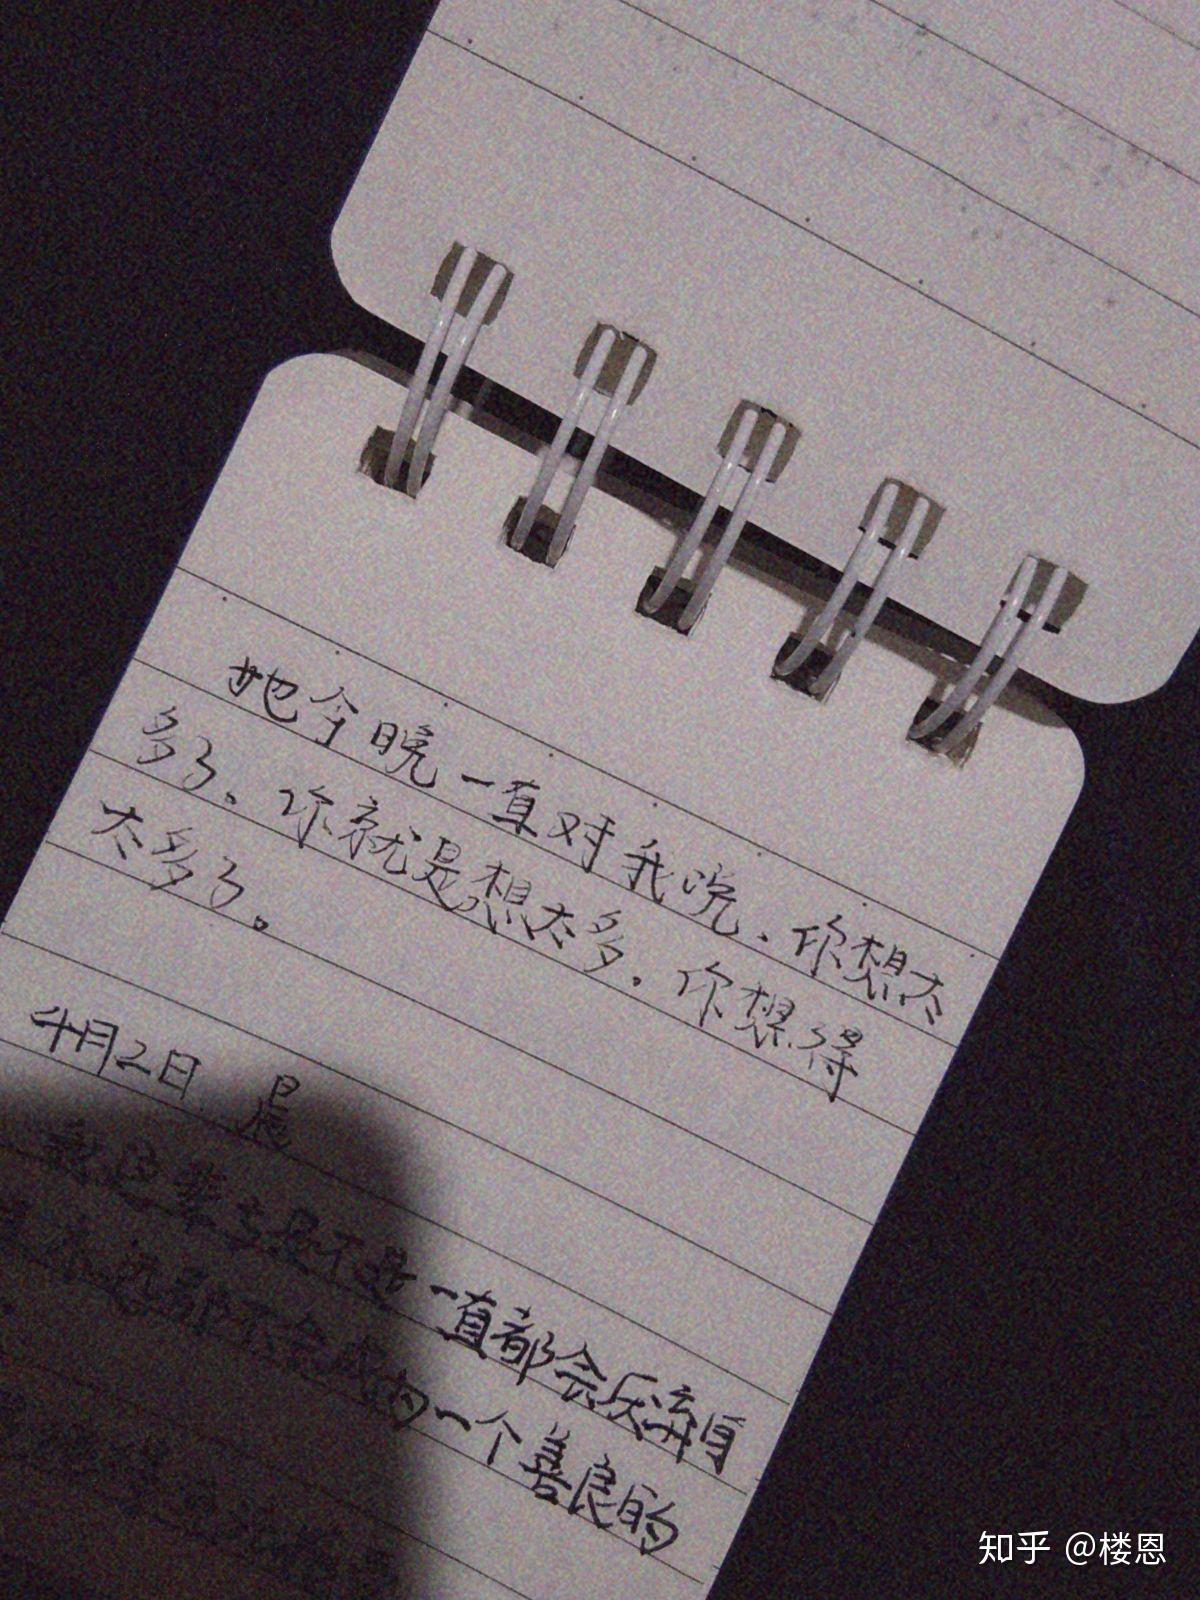 她今晚一直对我说、你想太
多了。你就是想太多。你想得
太多了。
4月2日 晨
我这辈子是不是一直都会厌弃自
永远都不会成为一个善良的
知乎 @楼恩